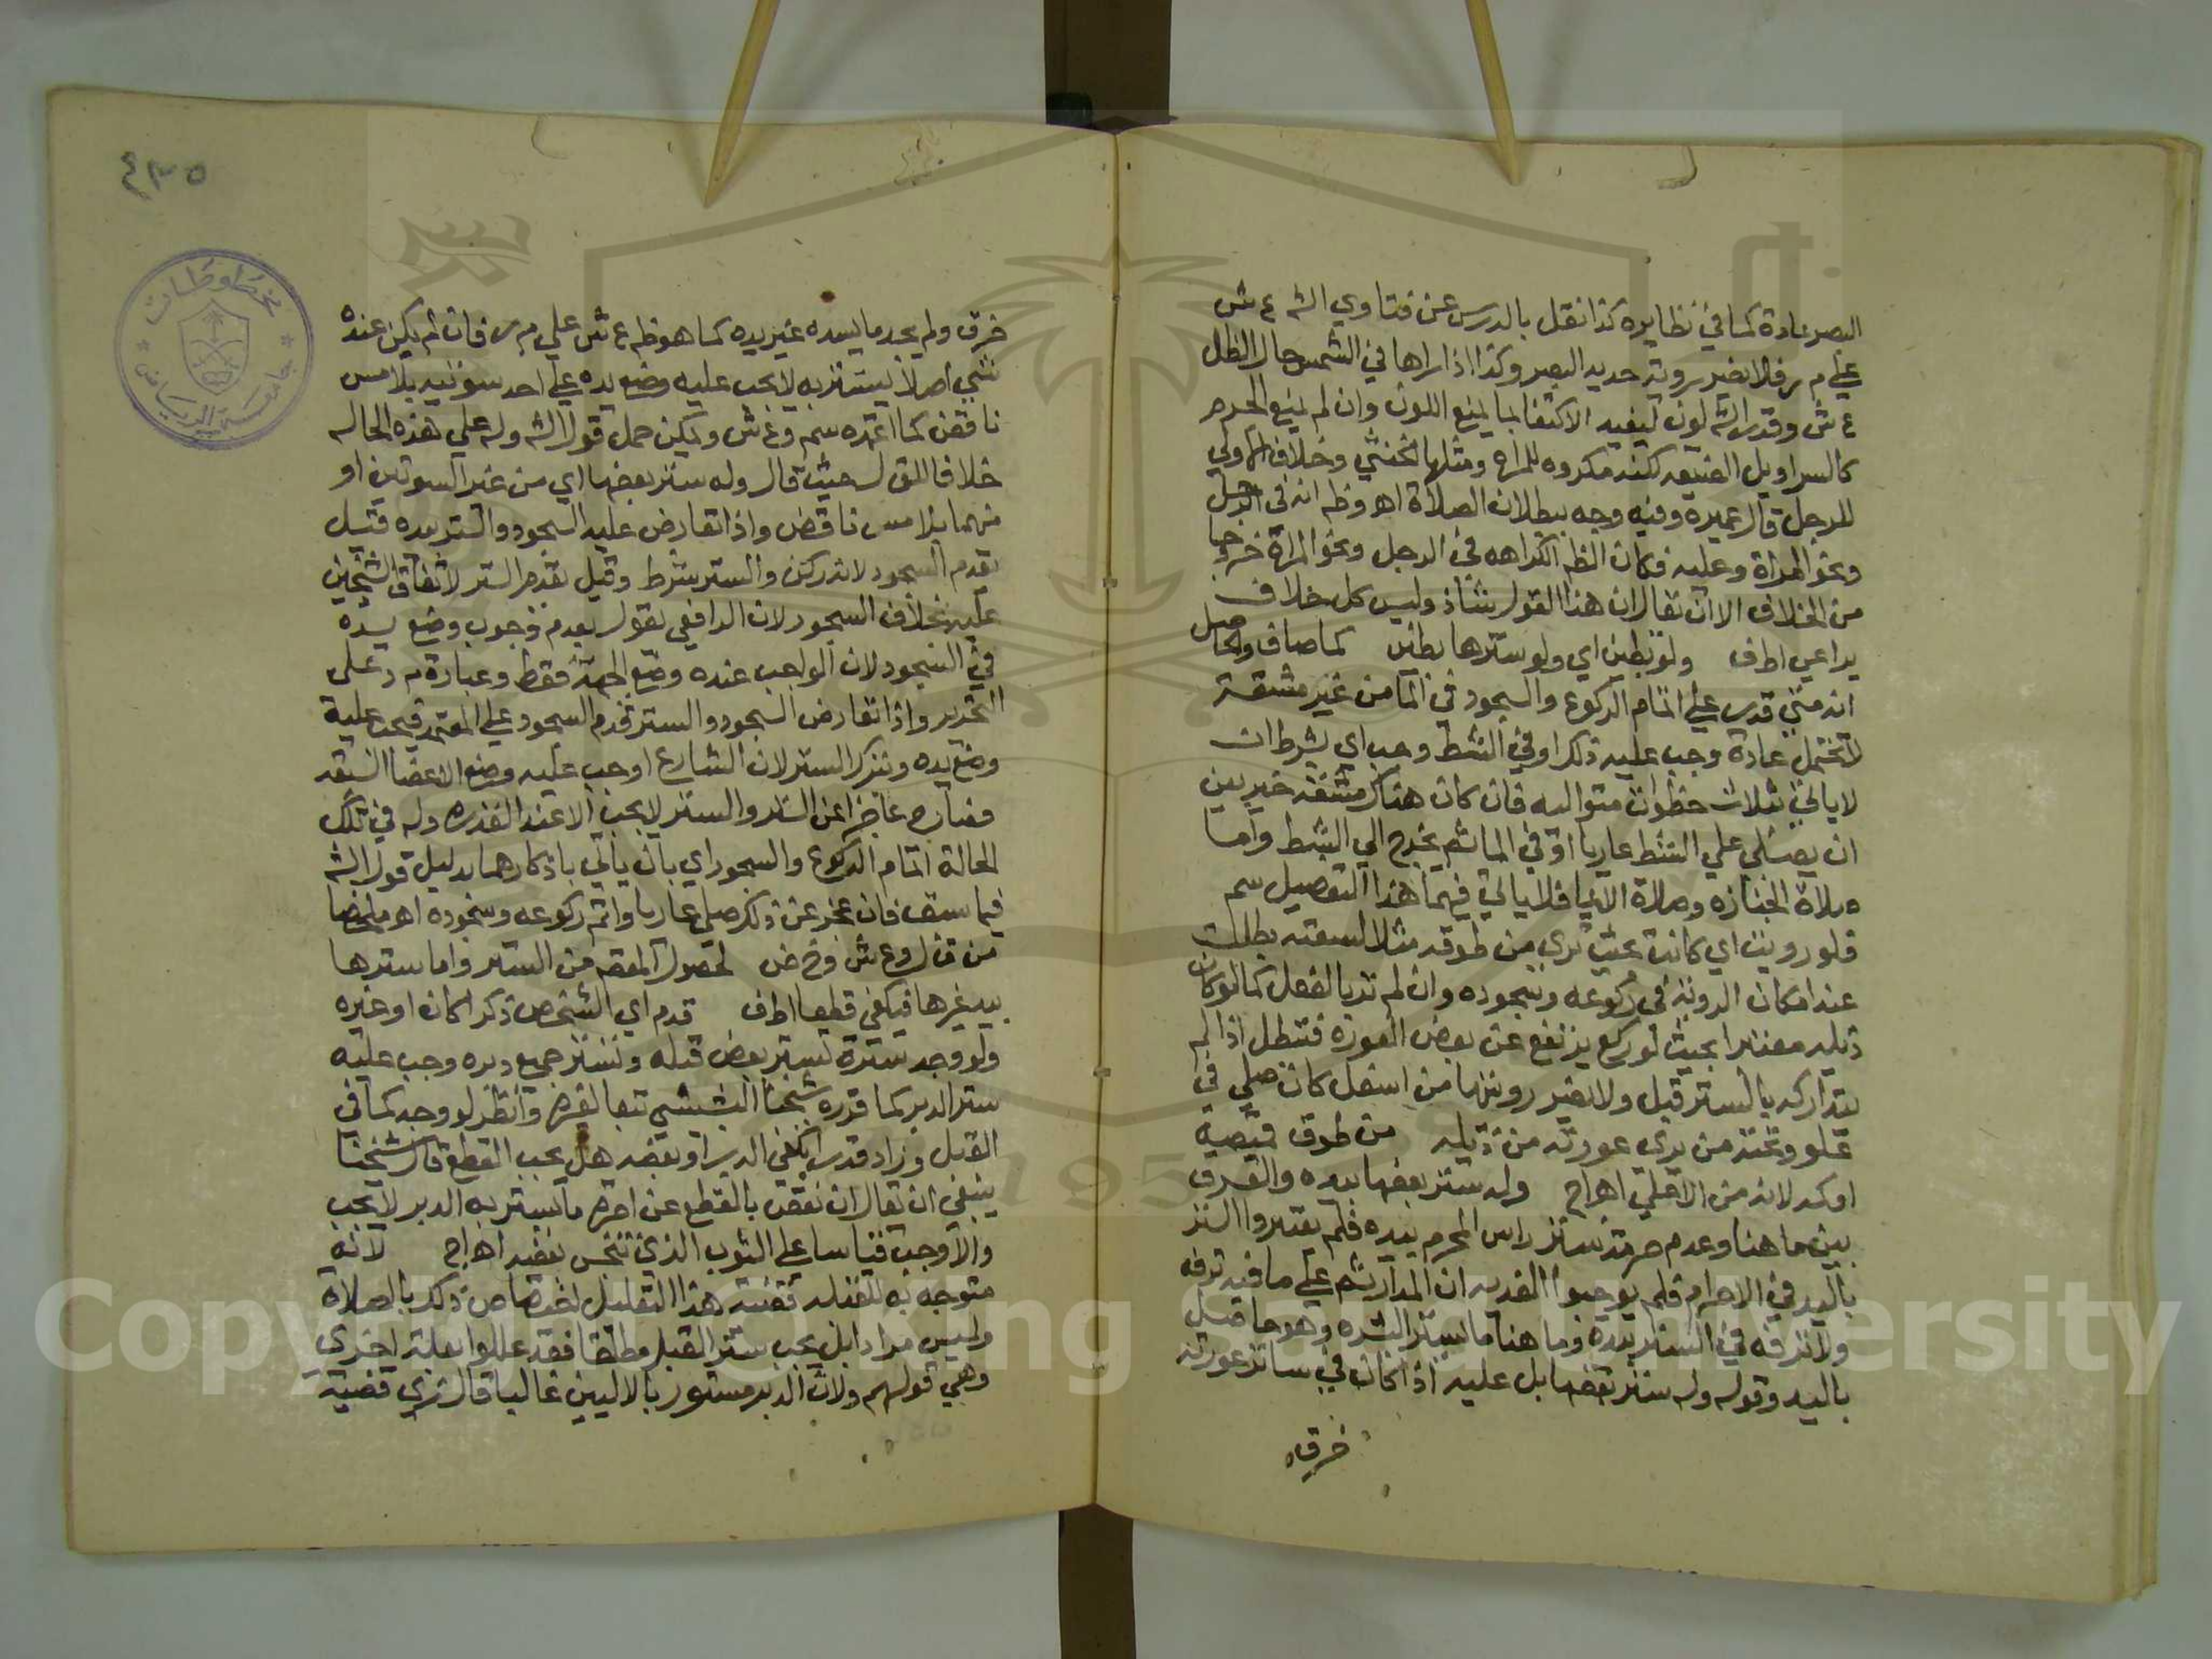 البصر عادة كما في نظايره كذا نقل بالدرس عن فتاوي الشه ع ش
علي م ر فلا يضر رويته حديد البصر وكذا اذا راها في الشمس حال الظل
ع ش وقدس الشه لون ليفيد الاكتفا بما يمنع اللون وان لم يمنع الحجم
كالسراويل الضيقه لكنه مكروه للمراة ومثلها الخنثي وخلاف الاولي
للرجل قال عميره وفيه وجه ببطلان الصلاة اه وظ انه في الرجل
ونحو المراة وعليه فكان الظ الكراهه في الرجل ونحو المراة خروجا
من الخلاف الا ان يقال ان هذا القول شاذ وليس كل خلاف
يراعي اطف ولو بطين اي ولو سترها بطين كما صاف والحاصل
انه متي قدر علي اتمام الركوع والسجود في الما من غير مشقة
لا تحتمل عادة وجب عليه ذلك او في الشط وجب اي بشرط ان
لا ياتي بثلاث خطوات متواليه فان كان هناك مشقه خير بين
ان يصلي علي الشط عاريا او في الما ثم يخرج الي الشط واما
صلاة الجنازه وصلاة الايما فلا ياتي فيهما هذا التفصيل سم
فلو رويت اي كانت بحيث تري من طوقه مثلا لسعته بطلت
عند امكان الروية في ركوعه وسجوده وان لم تر بالفعل كما لو كان
ذيله مقصرا بحيث لو ركع يرتفع عن بعض العورة فتبطل اذا لم
يتداركه بالستر قبل ولا يضر رويتها من اسفل كان صلي في
علو وتحته من يري عورته من ذيله من طوق قميصه
اوكد لانه من الاعلي اه اج وله ستر بعضها بيده والفرق
بين ما هنا وعدم حرمة ستر راس المحرم بيده فلم يعتبروا الستر
باليد في الاحرام فلم يوجبوا الفديه ان المدار ثم علي ما فيه ترفه
ولا ترفه في الستر بيده وما هنا ما يستر البشره وهو حاصل
باليد وقوله وله ستر بعضها بل عليه اذا كان في ساتر عورته
خرق
٤٣٥
مخطوطات
جامعة الرياض
خرق ولم يجد ما يسده غير يده كما هو ظ ع ش علي م ر فان لم يكن عنده
شي اصلا يستتر به لا يجب عليه وضع يده علي احد سوتيه بلا مس
ناقض كما اعتمده سم و ع ش ويمكن حمل قول الشه وله علي هذه الحاله
خلافا للق ل حيث قال وله ستر بعضها اي من غير السوتين او
منهما بلا مس ناقض واذا تعارض عليه السجود والستر بيده قيل
يقدم السجود لانه ركن والستر شرط وقيل يقدم الستر لاتفاق الشيخين
عليه بخلاف السجود لان الرافعي يقول بعدم وجوب وضع يده
في السجود لان الواجب عنده وضع الجبهة فقط وعبارة م د علي
التحرير واذا تعارض السجود والستر قدم السجود علي المعتمد فيجب عليه
وضع يده وتترك الستر لان الشارع اوجب عليه وضع الاعضا السبعه
فصار عاجزا عن الستر والستر لا يجب الا عند القدره وله في تلك
الحالة اتمام الركوع والسجود اي بان ياتي باذكارهما بدليل قول الشه
فيما سبق فان عجز عن ذلك صلي عاريا واتم ركوعه وسجوده اه ملخصا
من ق ل و ع ش و خ ض لحصول المقصم من الستر واما سترها
بيد غيرها فيكفي قطعا اطف قدم اي الشخص ذكرا كان او غيره
ولو وجد سترة تستر بعض قبله وتستر جميع دبره وجب عليه
ستر الدبر كما قرره شيخنا البشبيشي تبعا لغيره وانظر لو وجد كما في
القبل وزاد قدرا يكفي الدبر او بعضه هل يجب القطع قال شيخنا
ينبغي ان يقال ان نقص بالقطع عن اجرة ما يستر به الدبر لا يجب
والا وجب قياسا علي الثوب الذي تنجس بعضه اه اج لانه
متوجه به للقبله قضية هذا التعليل اختصاص ذلك بالصلاة
وليس مرادا بل يجب ستر القبل مطلقا فقد عللوا بعلة اخري
وهي قولهم ولان الدبر مستور بالاليين غالبا قال شري قضية
Copyright © King Saud University
195